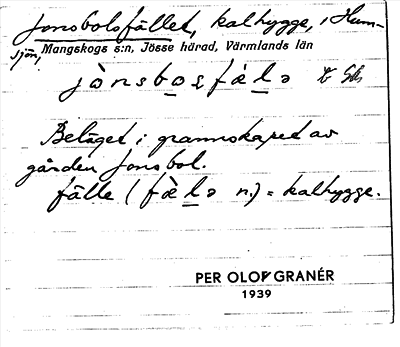 Jonsbolsfället, kalhygge, i Hum-
sjön, Mangskogs s:n, Jösse härad, Värmlands län
jònsbosfæ̀lə
Beläget i grannskapet av
gården Jonsbol.
fälle (fæ̀lə n.) = kalhygge.
PER OLOF GRANÉR
1939